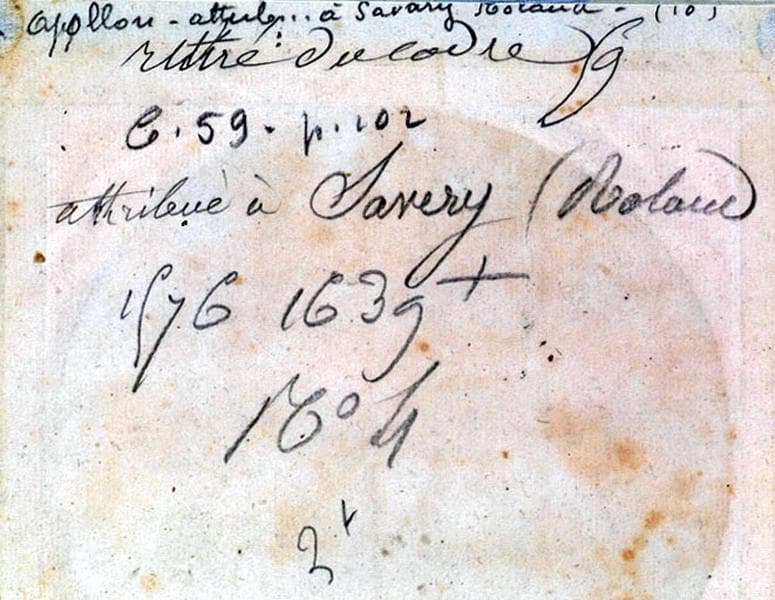 Apollon - attribu... à Savary Roland - (10)
rettré du cadre 59
C. 59. p. 102
attribué à Savery (Roland)
1576 1639 +
N° 4
2